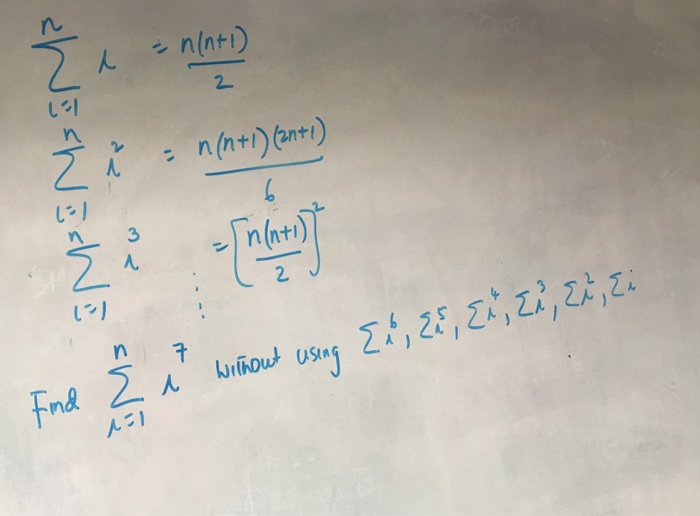 n
∑ i = n(n+1)/2
i=1
n
∑ i² = n(n+1)(2n+1)/6
i=1
n
∑ i³ = [n(n+1)/2]²
i=1
⋮
n
Find ∑ i⁷ without using ∑i⁶, ∑i⁵, ∑i⁴, ∑i³, ∑i², ∑i
i=1